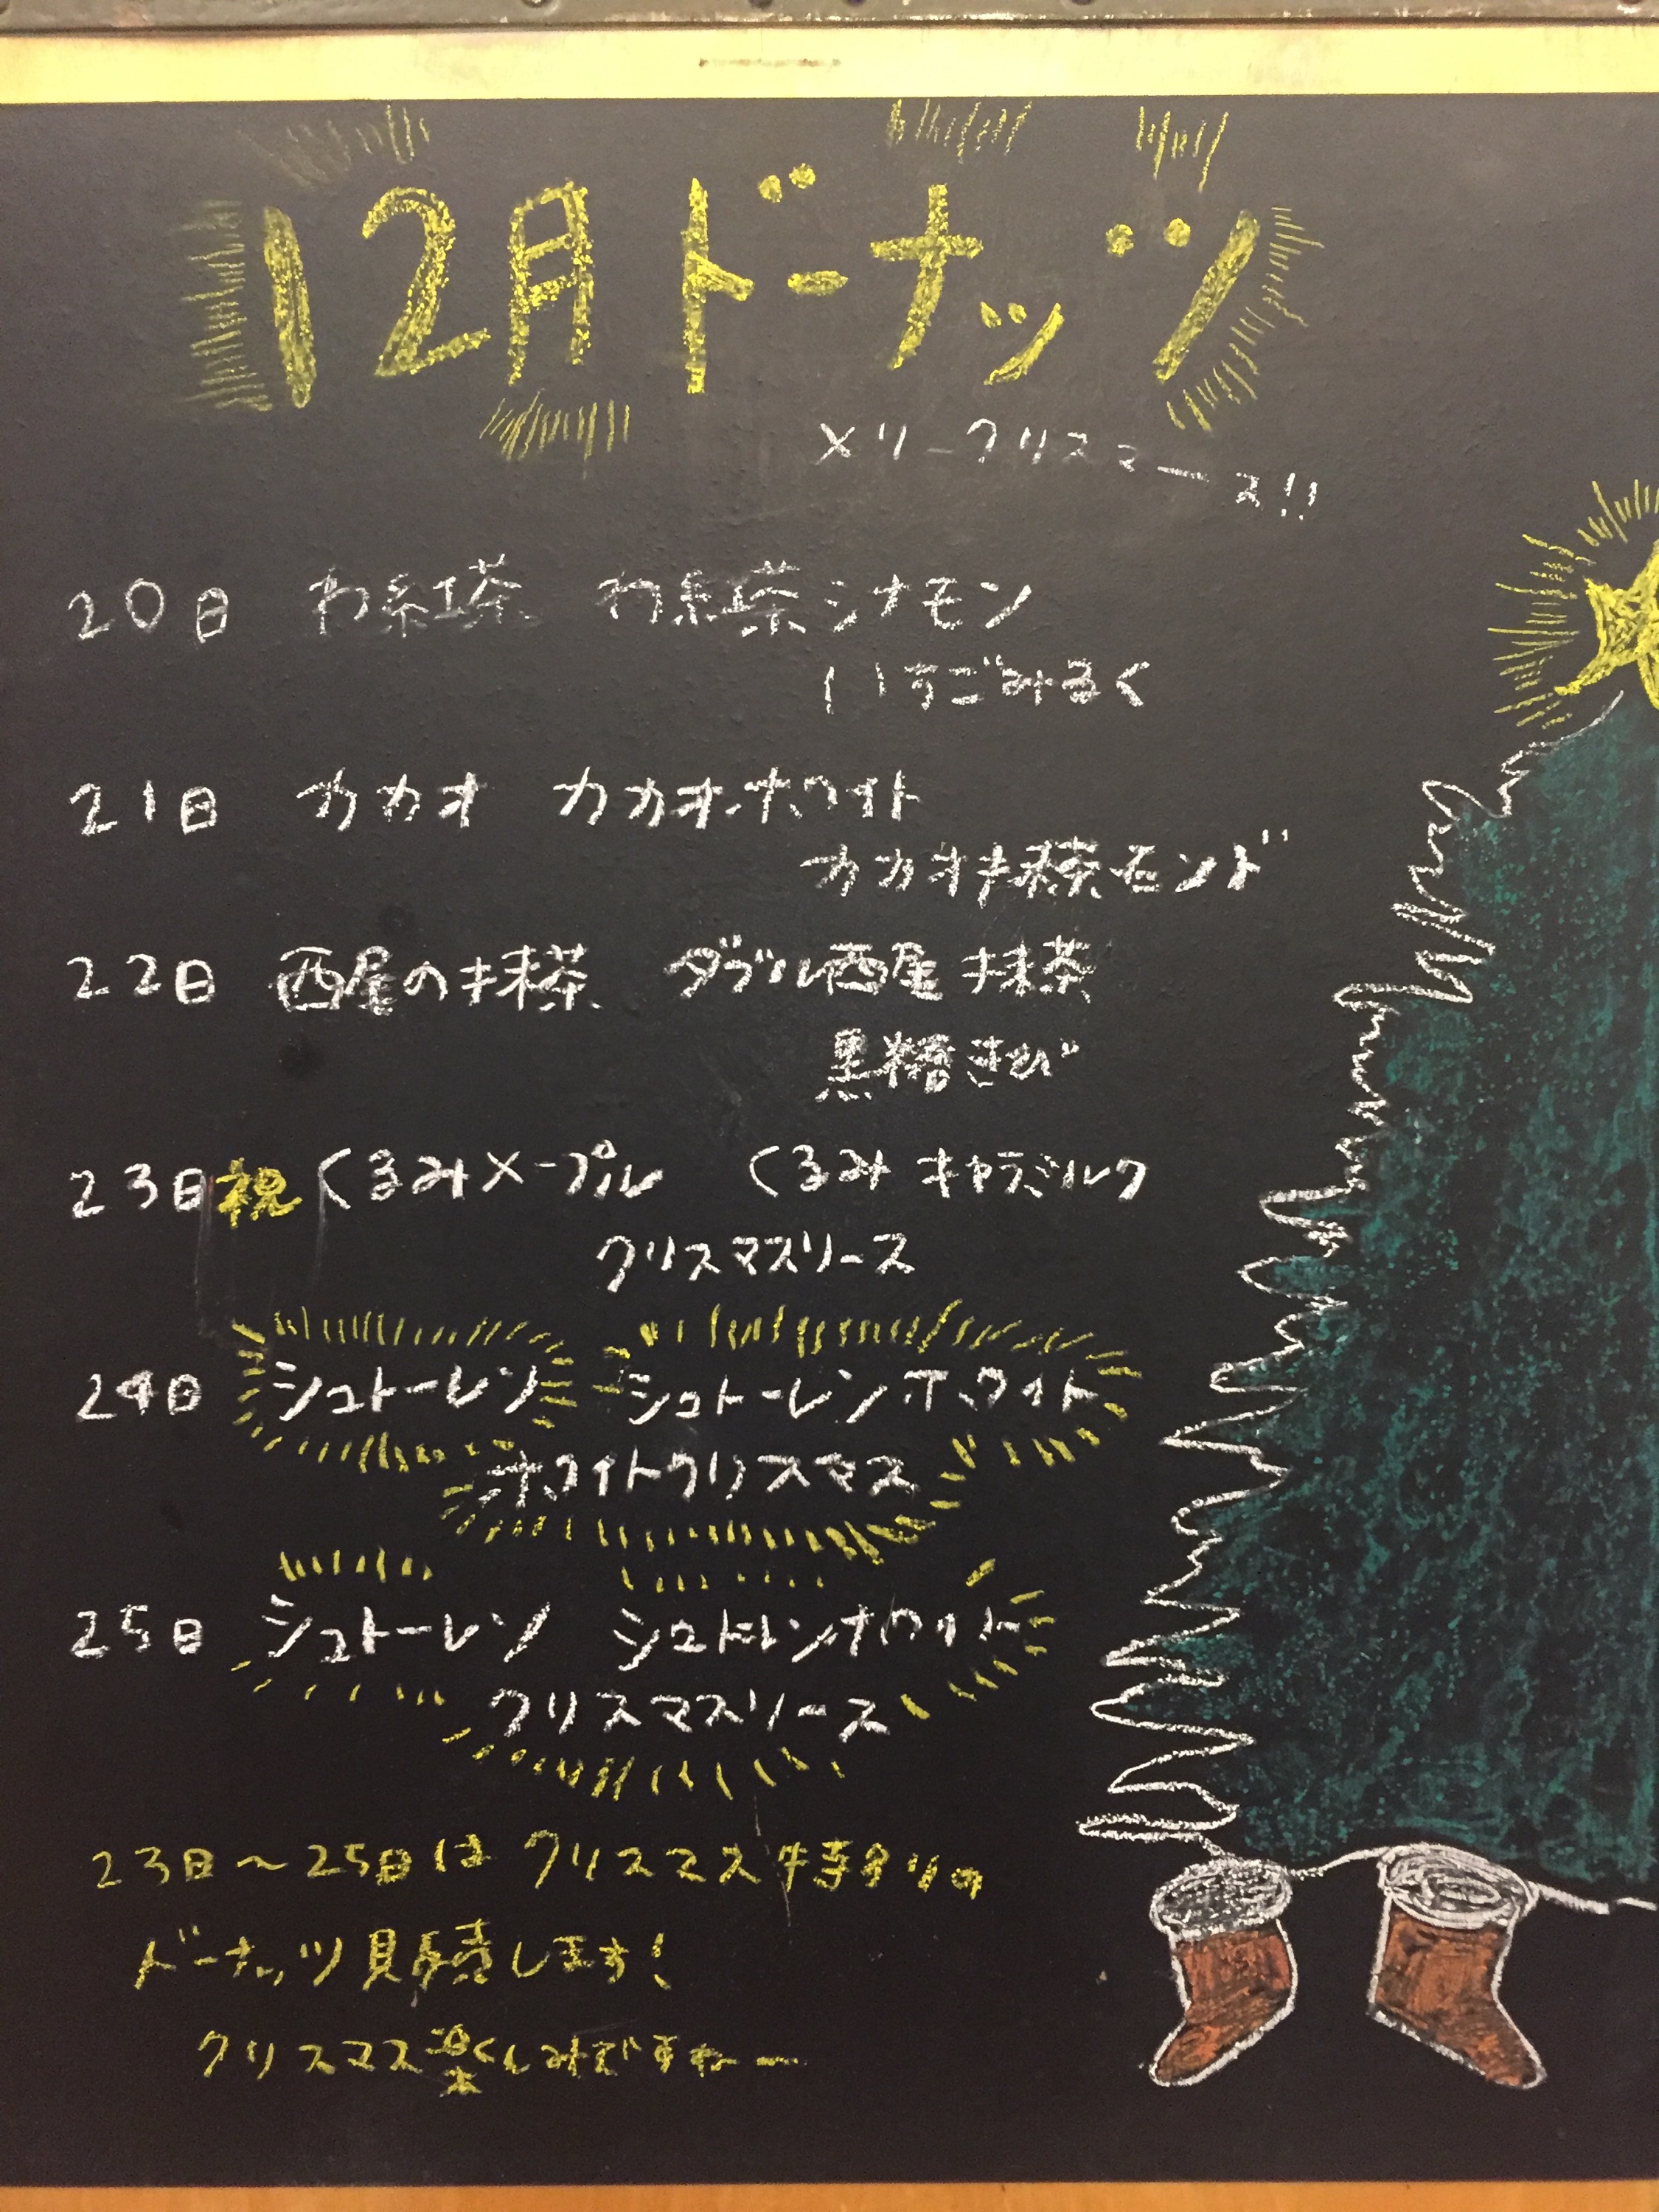 12月ドーナッツ
メリークリスマース!!
20日 わ紅茶 わ紅茶シナモン
いちごみるく
21日 カカオ カカオホワイト
カカオ抹茶モンド
22日 西尾の抹茶 ダブル西尾抹茶
黒糖きび
23日祝 くるみメープル くるみキャラミルク
クリスマスリース
24日 シュトーレン シュトーレンホワイト
ホワイトクリスマス
25日 シュトーレン シュトーレンホワイト
クリスマスリース
23日〜25日はクリスマス特別の
ドーナッツ販売します!
クリスマス楽しみですねー